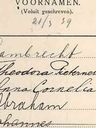 VOORNAMEN.
(Voluit geschreven).
21/3 29
Lambrecht
Theodora Petronel
Anna Cornelia
Abraham
Johannes